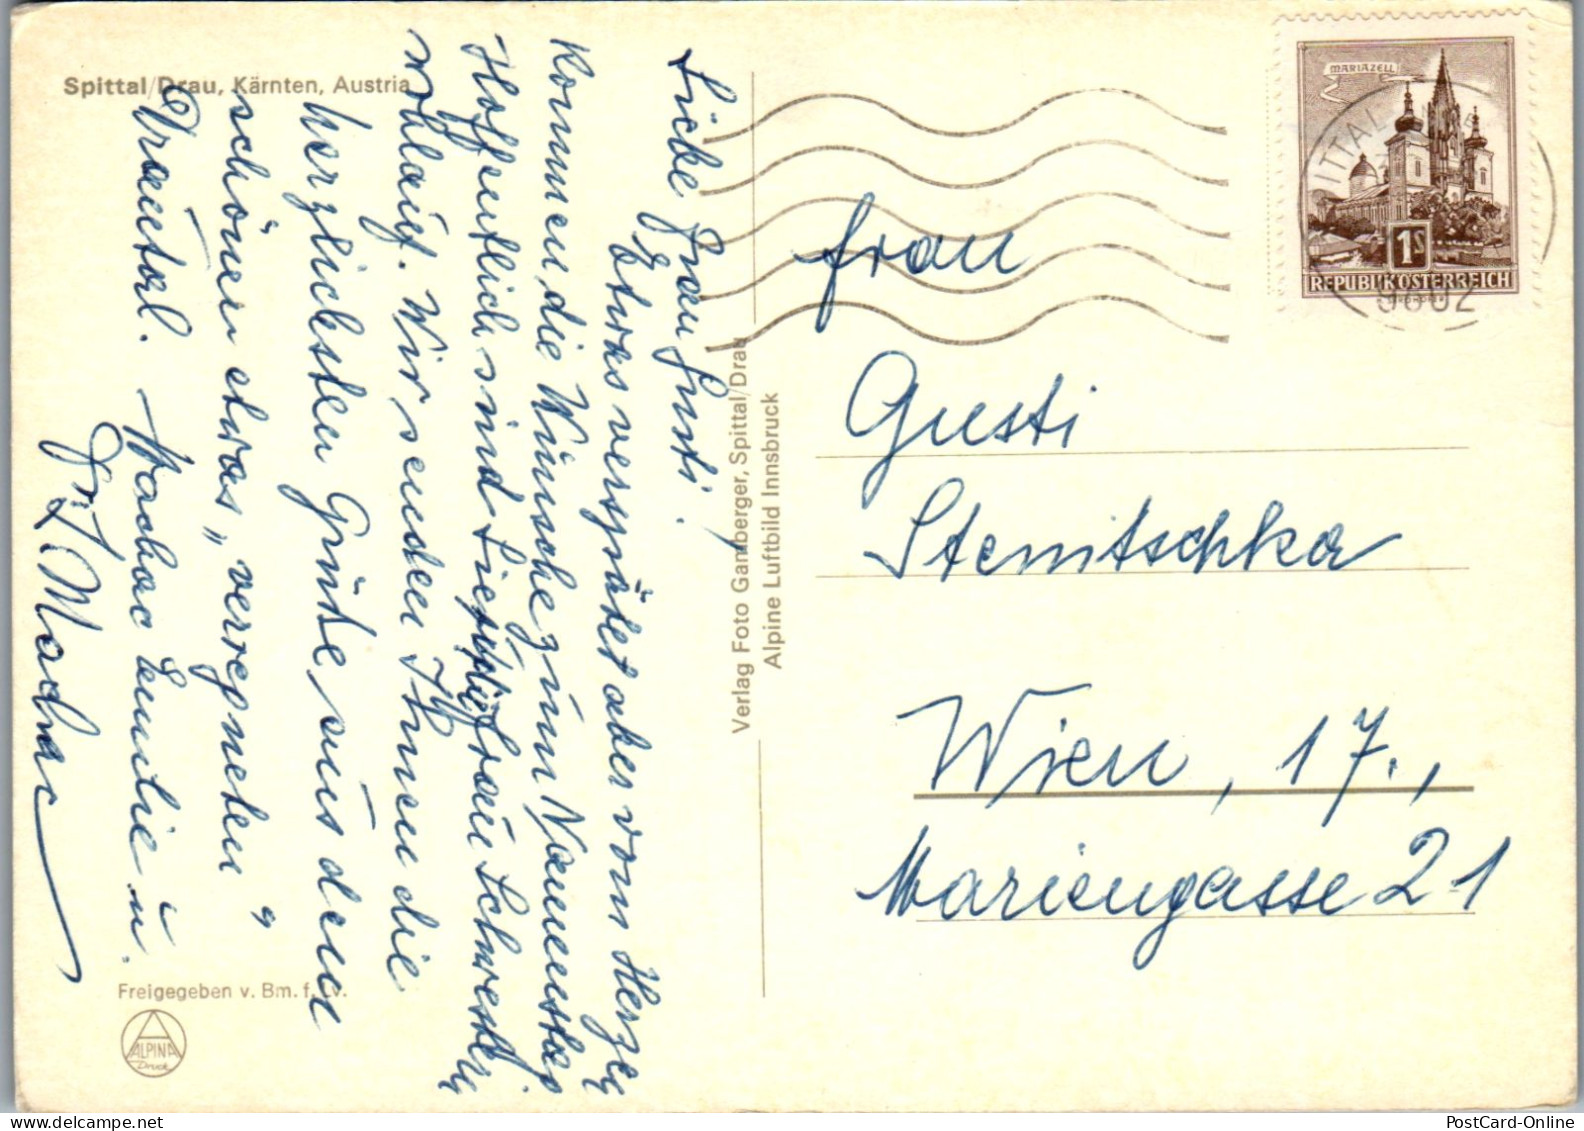 Spittal/Drau, Kärnten, Austria
Liebe Frau Gusti.
Etwas verspätet aber vom Herzen
kommen die Wünsche zum Namenstag
Hoffentlich sind Sie und Frau Schwester
wohlauf. Wir senden Ihnen die
herzlichsten Grüße aus dem
schönen etwas „verregneten“
Drautal.
Emilie u.
Verlag Foto Gamberger, Spittal/Drau
Alpine Luftbild Innsbruck
Freigegeben v. Bm. f. v.
ALPINA
Druck
MARIAZELL
1S
REPUBLIK ÖSTERREICH
Frau
Gusti
Stemitschka
Wien, 17.,
Mariengasse 21
PostCard-Online